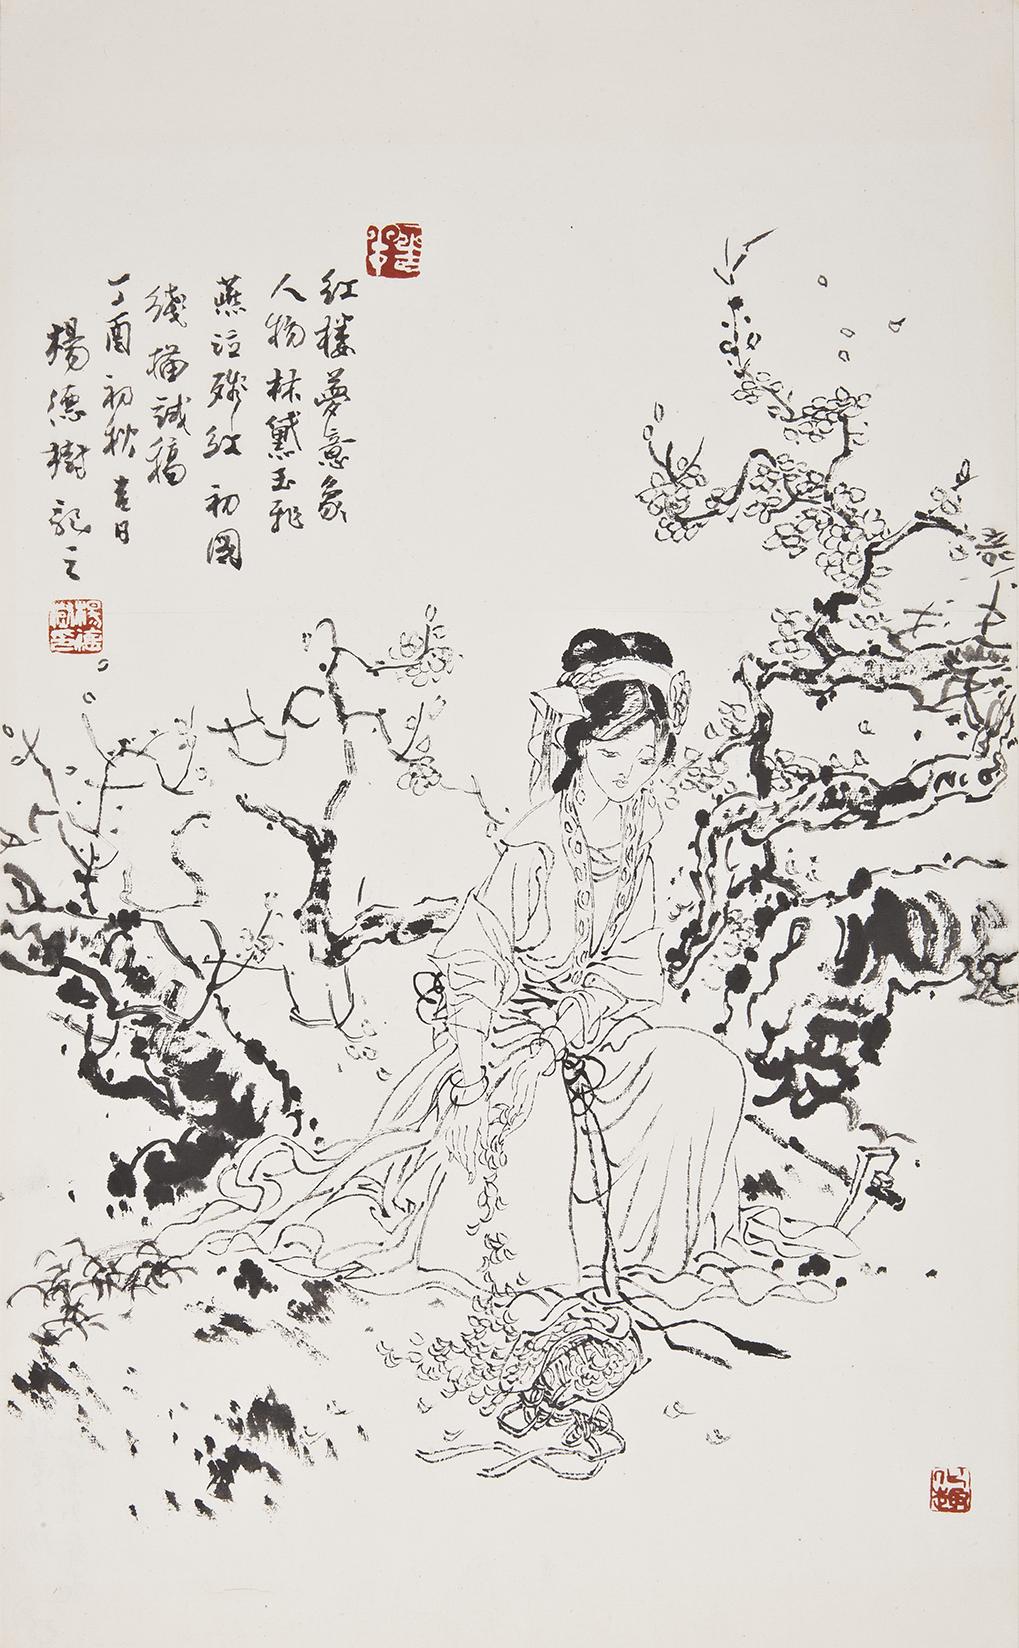 红楼夢意象
人物林黛玉飛
燕泣殘红初圖
綫描試稿
丁酉初秋吉日
楊德樹記之
楊德樹印